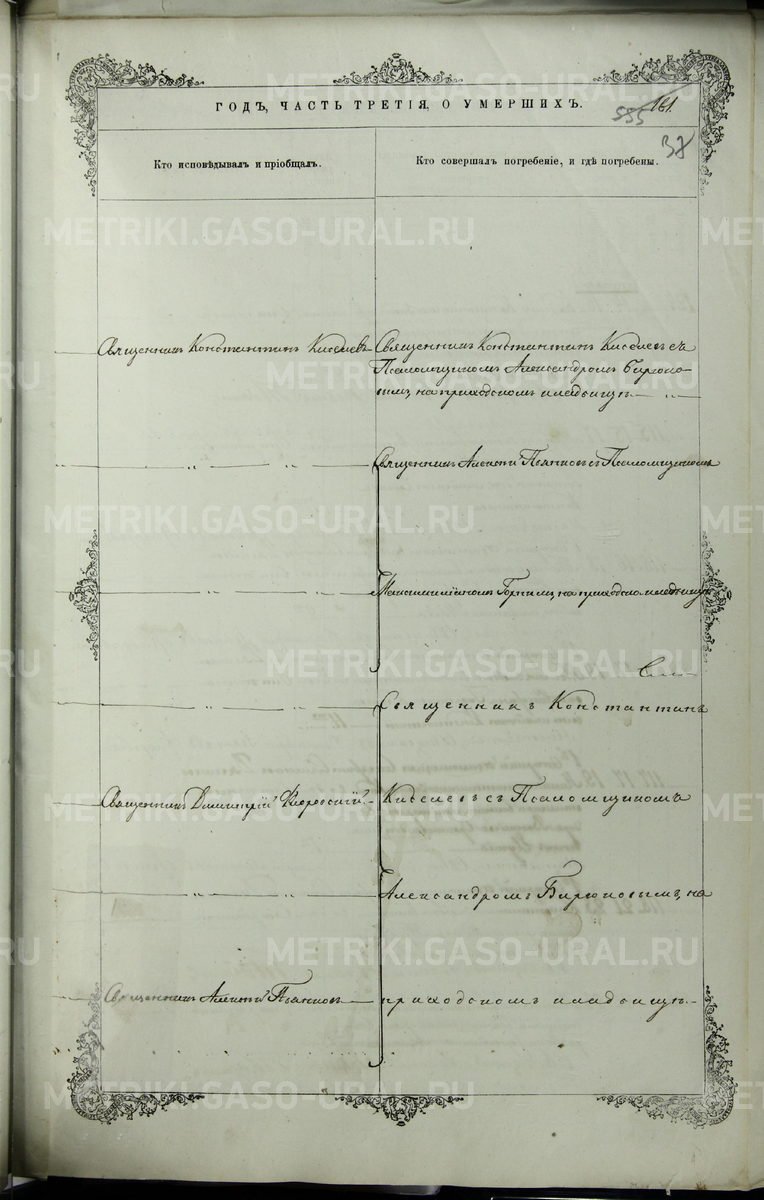 ГОДЪ, ЧАСТЬ ТРЕТІЯ, О УМЕРШИХЪ.
161.
37
Кто исповѣдывалъ и пріобщалъ.
Кто совершалъ погребеніе, и гдѣ погребены.
Священникъ Константинъ Киселевъ
Священникъ Константинъ Киселевъ съ
Псаломщикомъ Александромъ Бирюко-
вымъ, на приходскомъ кладбищѣ
Священникъ Алексій Пьянковъ съ Псаломщикомъ
Максимиліаномъ на приходскомъ кладбищѣ
Священникъ Константинъ
Священникъ Димитрій Флоровскій
Киселевъ съ Псаломщикомъ
Александромъ Бирюковымъ, на
Священникъ Алексій Пьянковъ
приходскомъ кладбищѣ.
METRIKI.GASO-URAL.RU